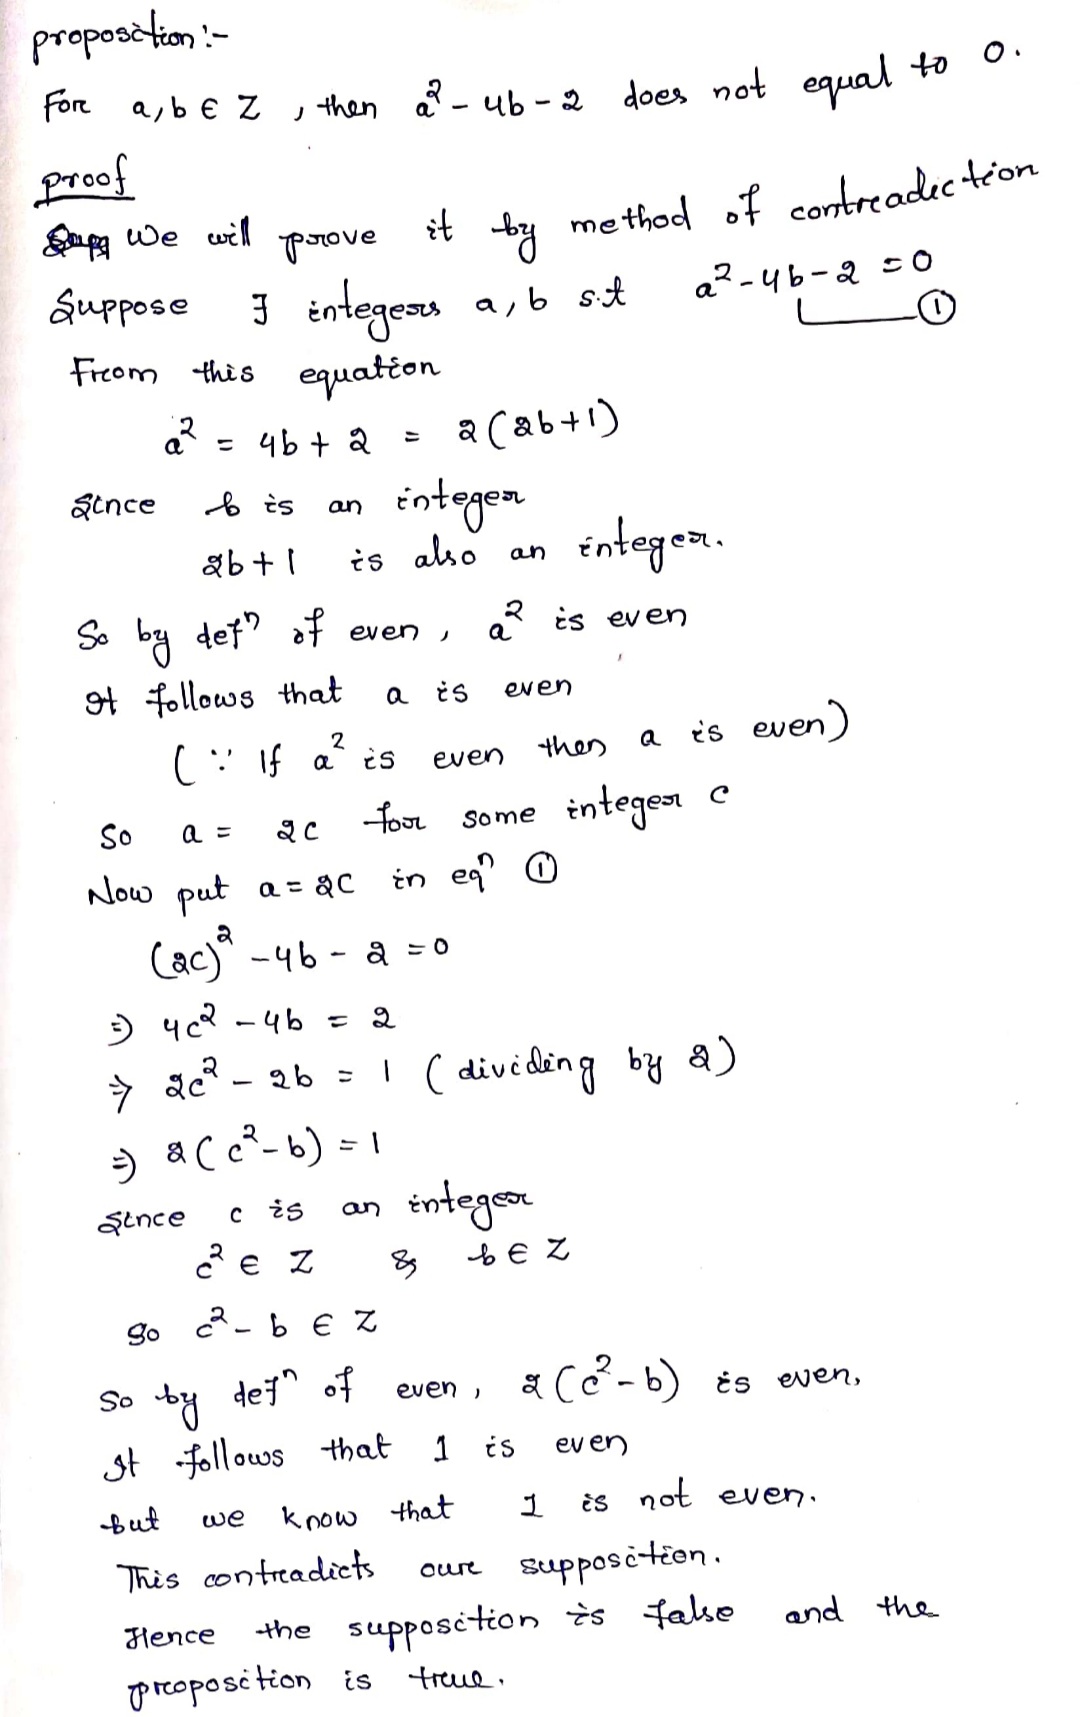 proposition :-
For a, b ∈ Z , then a² - 4b - 2 does not equal to 0.
proof
We will prove it by method of contradiction
Suppose ∃ integers a, b s.t a² - 4b - 2 = 0
①
From this equation
a² = 4b + 2 = 2(2b+1)
Since b is an integer
2b+1 is also an integer.
So by defⁿ of even , a² is even
It follows that a is even
( ∵ If a² is even then a is even)
So a = 2c for some integer c
Now put a = 2c in eqⁿ ①
(2c)² - 4b - 2 = 0
⇒ 4c² - 4b = 2
⇒ 2c² - 2b = 1 ( dividing by 2)
⇒ 2( c² - b) = 1
Since c is an integer
c² ∈ Z & b ∈ Z
So c² - b ∈ Z
So by defⁿ of even , 2(c² - b) is even,
It follows that 1 is even
but we know that 1 is not even.
This contradicts our supposition.
Hence the supposition is false and the
proposition is true.